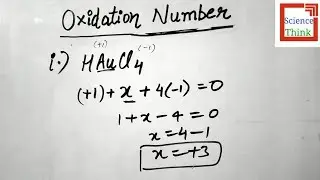 Oxidation Number
Science
Think
(+1) (-1)
i.) HAuCl4
(+1) + x + 4(-1) = 0
1 + x - 4 = 0
x = 4 - 1
x = +3